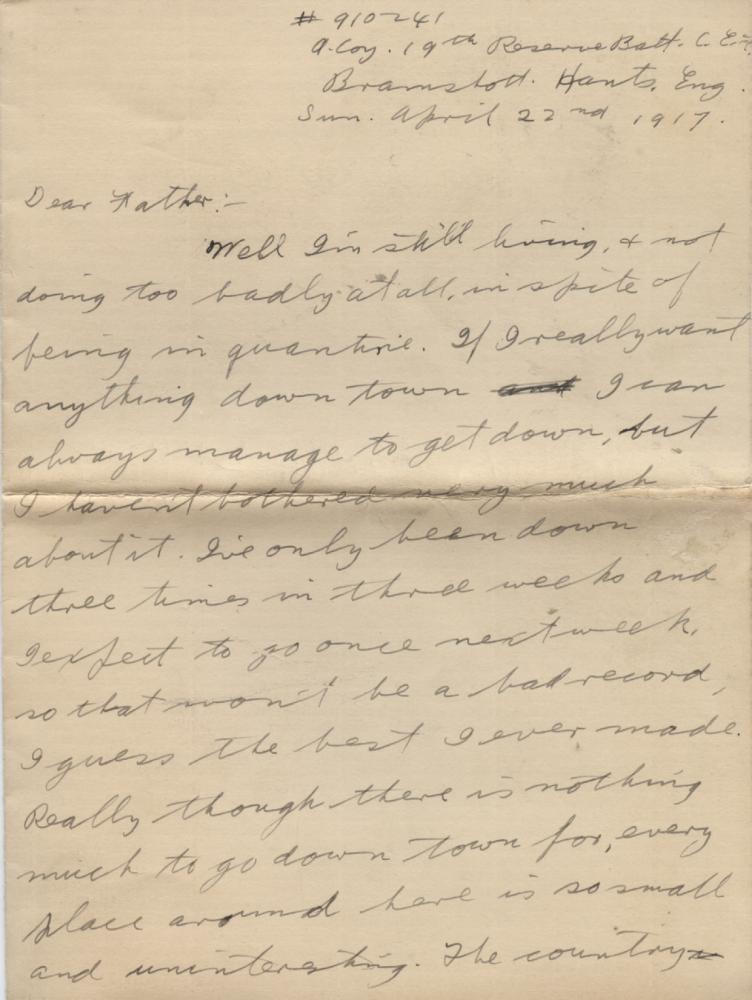 # 910241
A. Coy. 19th Reserve Batt. C. E. F.
Bramshott. Hants. Eng.
Sun. April 22nd 1917.
Dear Father:-
Well I'm still living, & not
doing too badly at all, in spite of
being in quantine. If I really want
anything down town I can
always manage to get down, but
I haven't bothered very much
about it. I've only been down
three times in three weeks and
I expect to go once next week,
so that won't be a bad record,
I guess the best I ever made.
Really though there is nothing
much to go down town for, every
place around here is so small
and uninteresting. The country